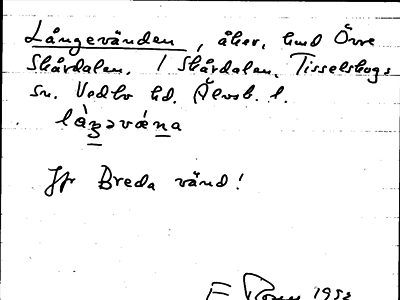 Långevänden, åker, hmd Övre
Skårdalen. / Skårdalen, Tisselskogs
sn. Vedbo hd. Älvsb. l.
låŋəvæna
Jfr Breda vänd!
1932